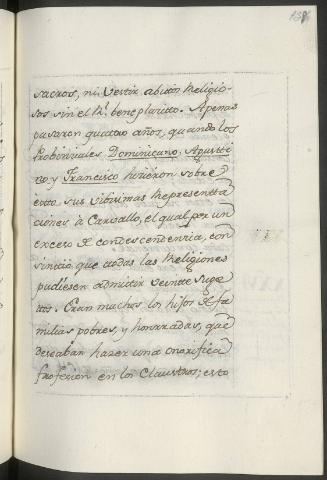 sacros, ni vestir abitos Religio-
sos sin el Rl. beneplacito. Apenas
pasaron quatro años, quando los
Probinciales Dominicano, Agusti
no y Francisco hicieron sobre
esto sus vibisimas Representa
ciones à Carvallo, el qual por un
exceso de condescendencia, con
sintio que todas las Religiones
pudiesen admitir veinte suge
tos. Eran muchos los hijos de fa
milias pobres, y honrradas, que
deseaban hazer una onorifica
profesion en los Claustros; esto